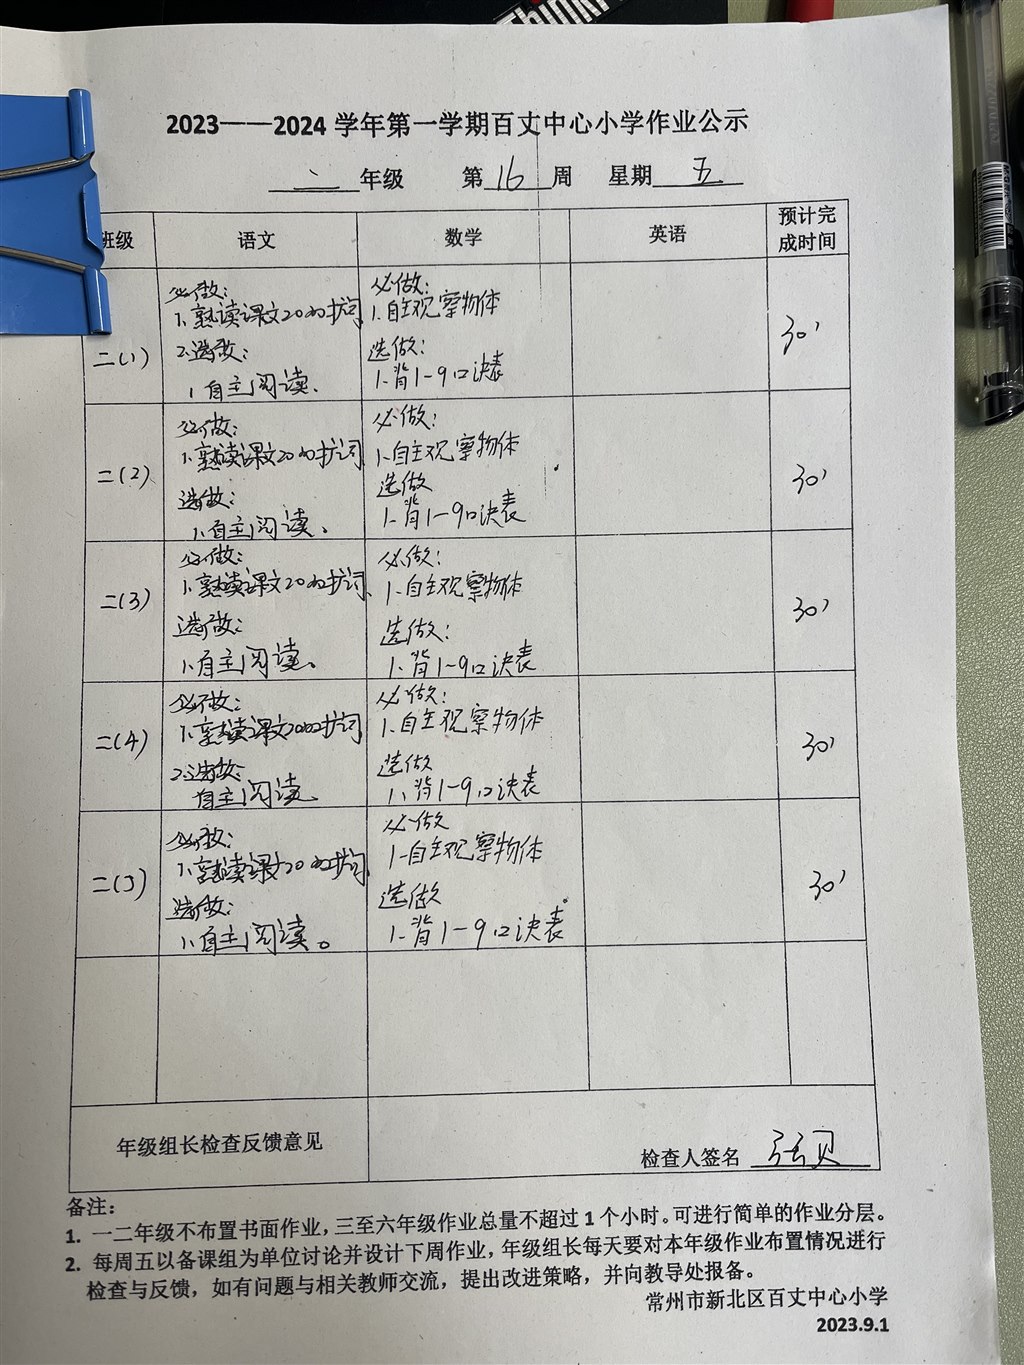 Think
2023——2024 学年第一学期百丈中心小学作业公示
二 年级 第 16 周 星期 五
班级 语文 数学 英语 预计完成时间
二(1)
必做:
1.熟读课文20的扩词
2.选做:
1.自主阅读.
必做:
1.自主观察物体
选做:
1.背1-9口决表
30'
二(2)
必做:
1.熟读课文20的扩词
选做:
1.自主阅读。
必做:
1.自主观察物体
选做
1.背1-9口决表
30'
二(3)
必做:
1.熟读课文20的扩词
选做:
1.自主阅读。
必做:
1.自主观察物体
选做:
1.背1-9口决表
30'
二(4)
必做:
1.熟读课文20的扩词
2.选做:
自主阅读.
必做:
1.自主观察物体
选做
1.背1-9口决表
30'
必做:
1.熟读课文20的扩词
选做:
1.自主阅读。
必做
1.自主观察物体
选做
1.背1-9口决表
30'
年级组长检查反馈意见
检查人签名 张贝
备注:
1. 一二年级不布置书面作业，三至六年级作业总量不超过 1 个小时。可进行简单的作业分层。
2. 每周五以备课组为单位讨论并设计下周作业，年级组长每天要对本年级作业布置情况进行
检查与反馈，如有问题与相关教师交流，提出改进策略，并向教导处报备。
常州市新北区百丈中心小学
2023.9.1